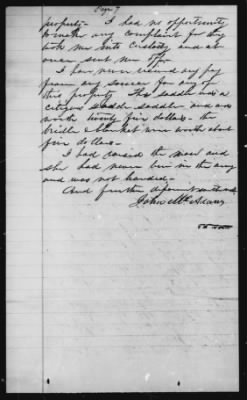 Page 7
property - I had no opportunity
to make any complaint for they
took me into Custody and at
once sent me off.
I have never received any pay
from any source for any of
this property. The saddle was a
citizens saddle and was
worth twenty five dollars - the
bridle & blanket were worth about
five dollars -
I had raised the mare and
she had never been in the army
and was not branded -
And further deponent saith not
John McAdams